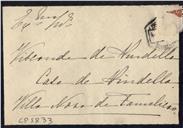 Visconde de Pindella
Casa de Pindella
Villa Nova de Famalicão
CP5833